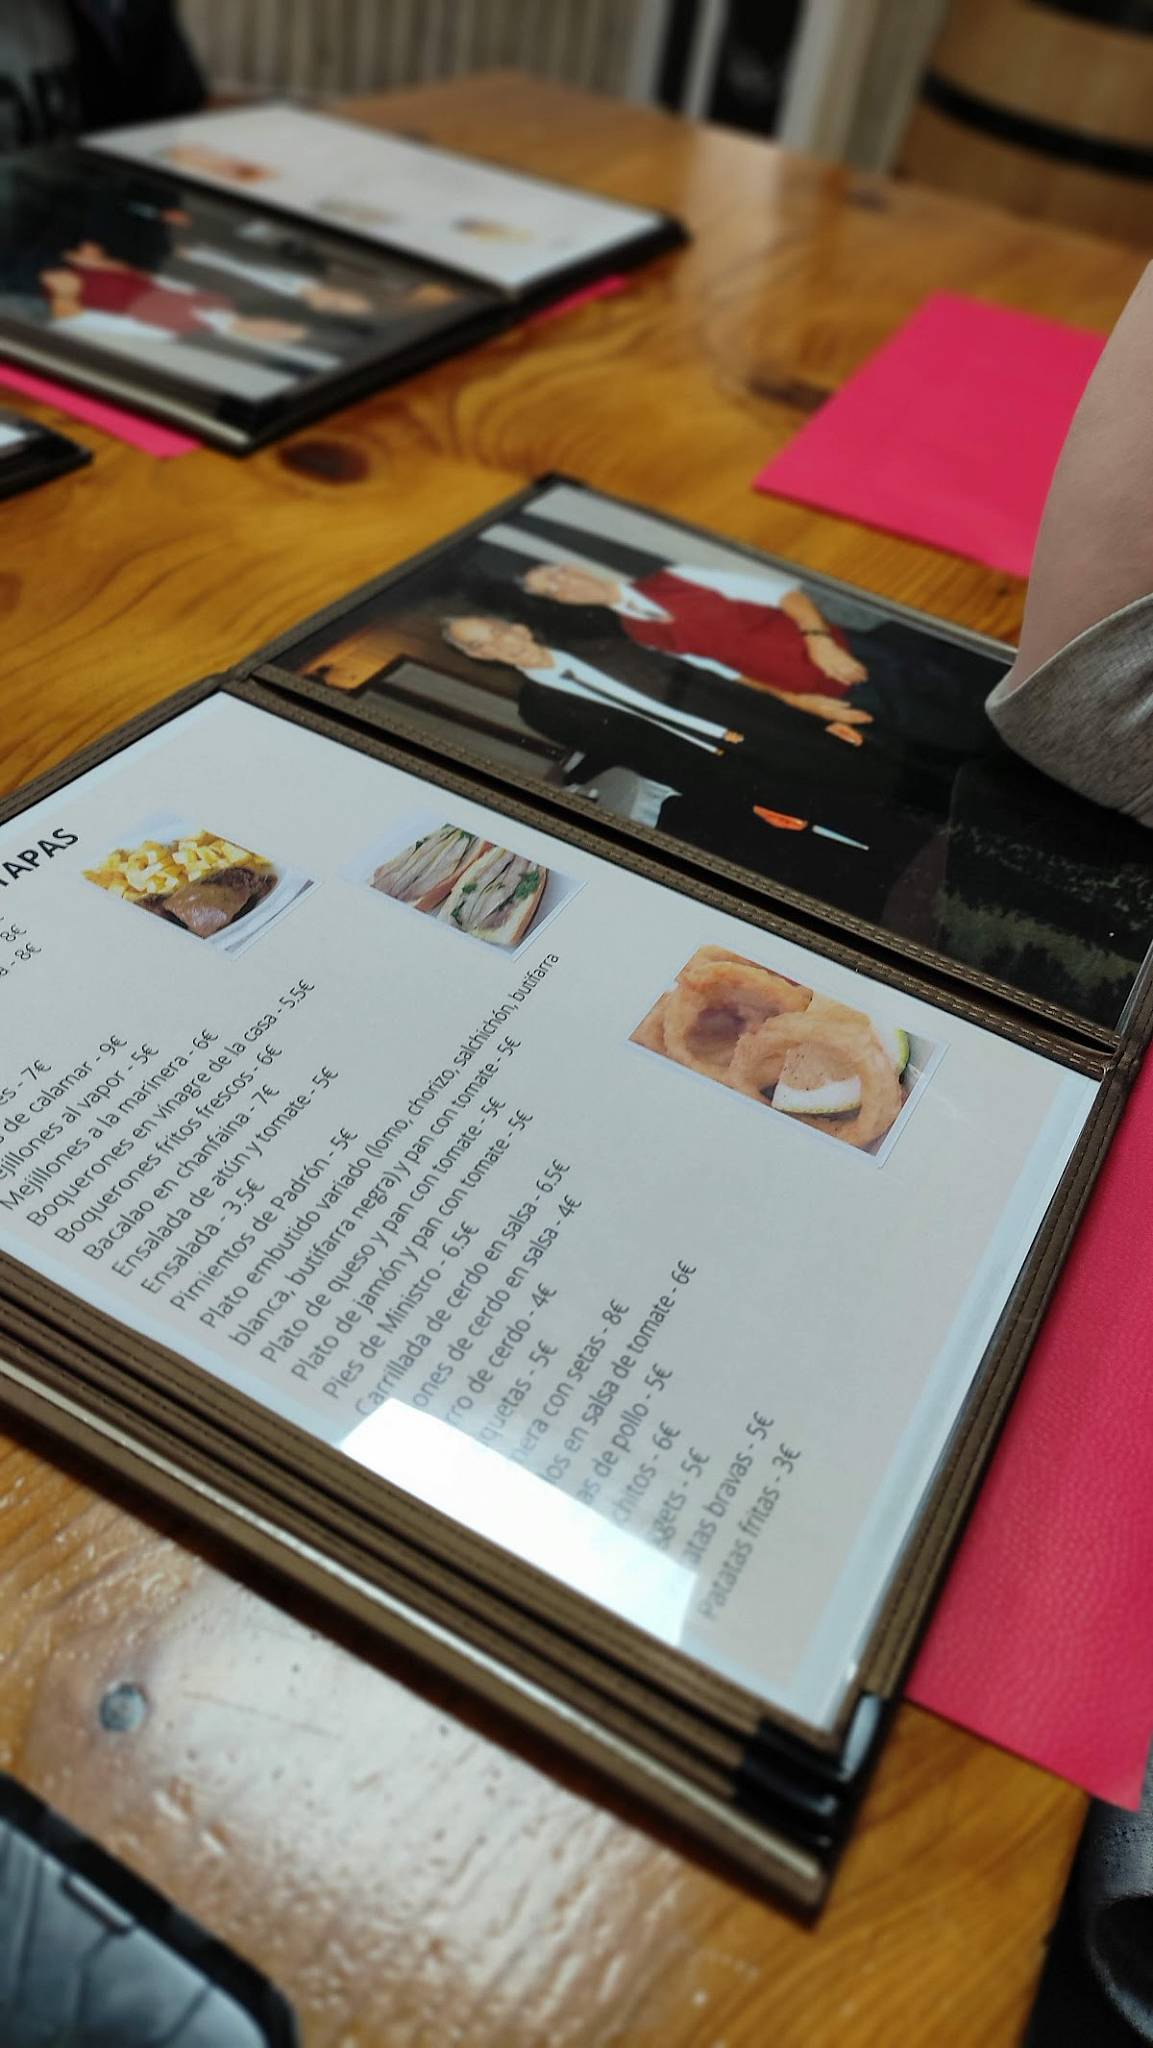 TAPAS
- 8€
- 8€
- 7€
de calamar - 9€
Mejillones al vapor - 5€
Mejillones a la marinera - 6€
Boquerones en vinagre de la casa - 5,5€
Boquerones fritos frescos - 6€
Bacalao en chanfaina - 7€
Ensalada de atún y tomate - 5€
Ensalada - 3.5€
Pimientos de Padrón - 5€
Plato embutido variado (lomo, chorizo, salchichón, butifarra
blanca, butifarra negra) y pan con tomate - 5€
Plato de queso y pan con tomate - 5€
Plato de jamón y pan con tomate - 5€
Pies de Ministro - 6.5€
Carrillada de cerdo en salsa - 6.5€
ones de cerdo en salsa - 4€
rro de cerdo - 4€
quetas - 5€
nera con setas - 8€
los en salsa de tomate - 6€
as de pollo - 5€
chitos - 6€
ggets - 5€
atas bravas - 5€
Patatas fritas - 3€